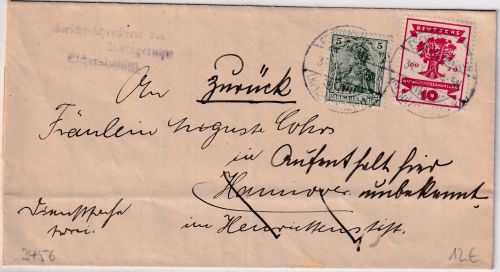 Gerichtsschreiberei des
Amtsgerichts
5
DEUTSCHE
1919
NATIONALVERSAMMLUNG
10
An Zurück
Fräulein Auguste Cohrs
in Aufenthalt hier
Hannover unbekannt
im Henriettenstift.
Dienstsache
3456
12.E